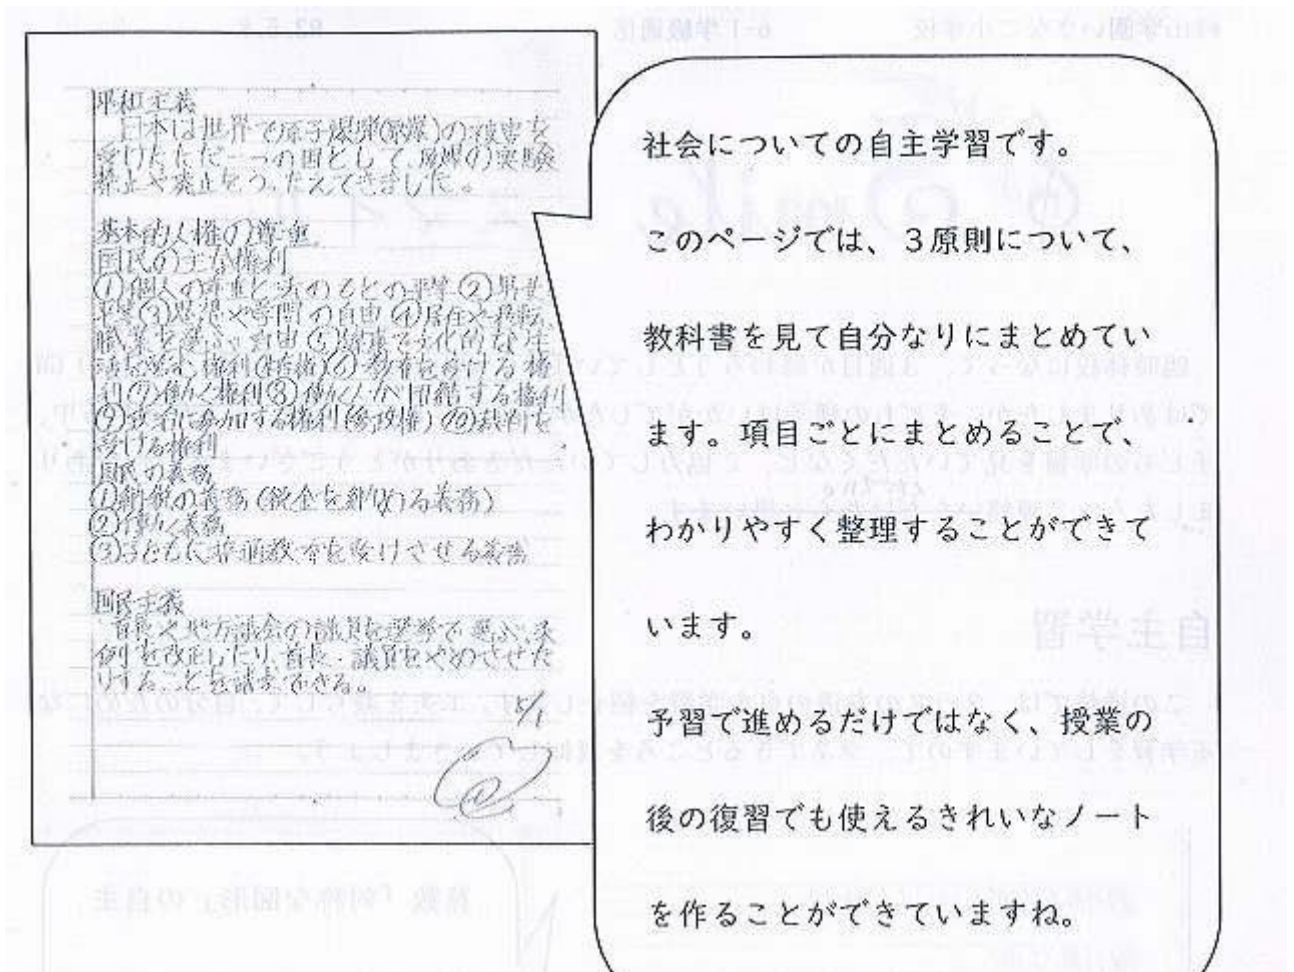 平和主義
日本は世界で原子爆弾(原爆)の被害を
受けたただ一つの国として、原爆の実験
禁止や廃止をうったえてきました。
基本的人権の尊重
国民の主な権利
①個人の尊重と法のもとの平等②男女
平等③思想や学問の自由④居住や移転、
職業を選ぶ自由⑤健康で文化的な生
活をする権利(生存権)⑥教育を受ける権
利⑦働く権利⑧働く人が団結する権利
⑨政治に参加する権利(参政権)⑩裁判を
受ける権利
国民の義務
①納税の義務(税金を納める義務)
②働く義務
③子どもに普通教育を受けさせる義務
国民主義
首長や地方議会の議員を選挙で選ぶ、条
例を改正したり、首長・議員をやめさせた
りすることを請求できる。
社会についての自主学習です。
このページでは、3原則について、
教科書を見て自分なりにまとめてい
ます。項目ごとにまとめることで、
わかりやすく整理することができて
います。
予習で進めるだけではなく、授業の
後の復習でも使えるきれいなノート
を作ることができていますね。